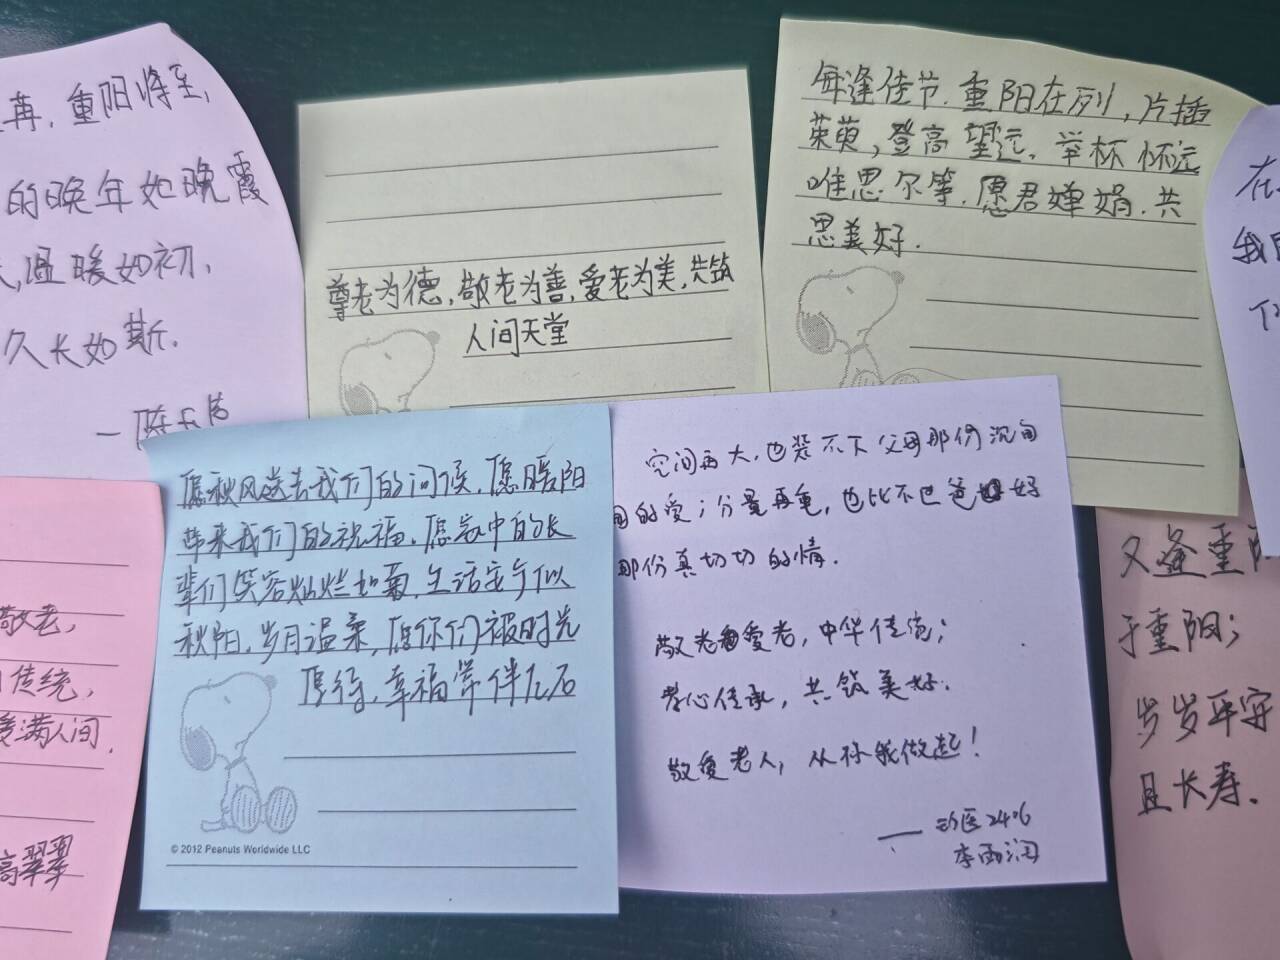 苒，重阳将至，
的晚年如晚霞
，温暖如初，
久长如斯．
尊老为德，敬老为善，爱老为美，共筑
人间天堂
每逢佳节．重阳在列，片插
茱萸，登高望远．举杯怀远
唯思尔等．愿君婵娟．共
思美好．
在
我
愿秋风送去我们的问候．愿暖阳
带来我们的祝福．愿家中的长
辈们笑容灿烂如菊，生活安宁似
秋阳．岁月温柔，愿你们被时光
厚待，幸福常伴左右
© 2012 Peanuts Worldwide LLC
空间再大，也装不下父母那份沉甸
甸的爱；分量再重，也比不过爸妈好
那份真切切的情．
敬老爱老，中华传统；
孝心传承，共筑美好．
敬爱老人，从你我做起！
——动医2406
李雨润
敬老，
传统，
爱满人间．
高翠翠
又逢重阳
于重阳；
岁岁平安
且长寿．